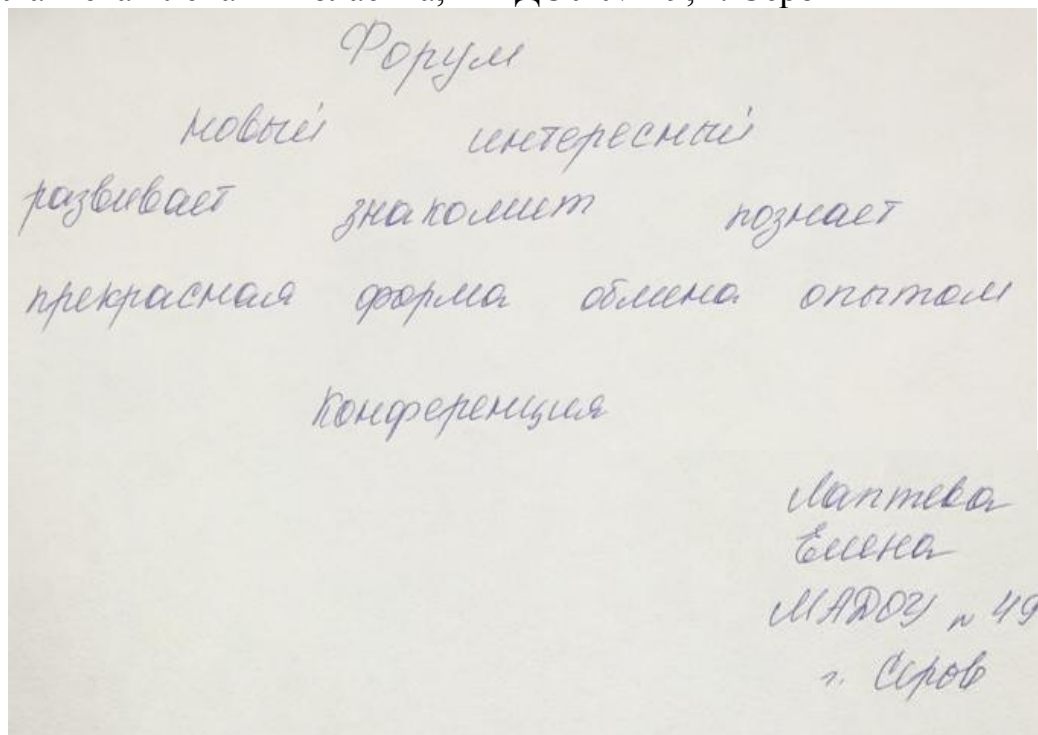 Форум
новый интересный
развивает знакомит познает
прекрасная форма обмена опытом
Конференция
Лаптева
Елена
МАДОУ № 49
г. Серов